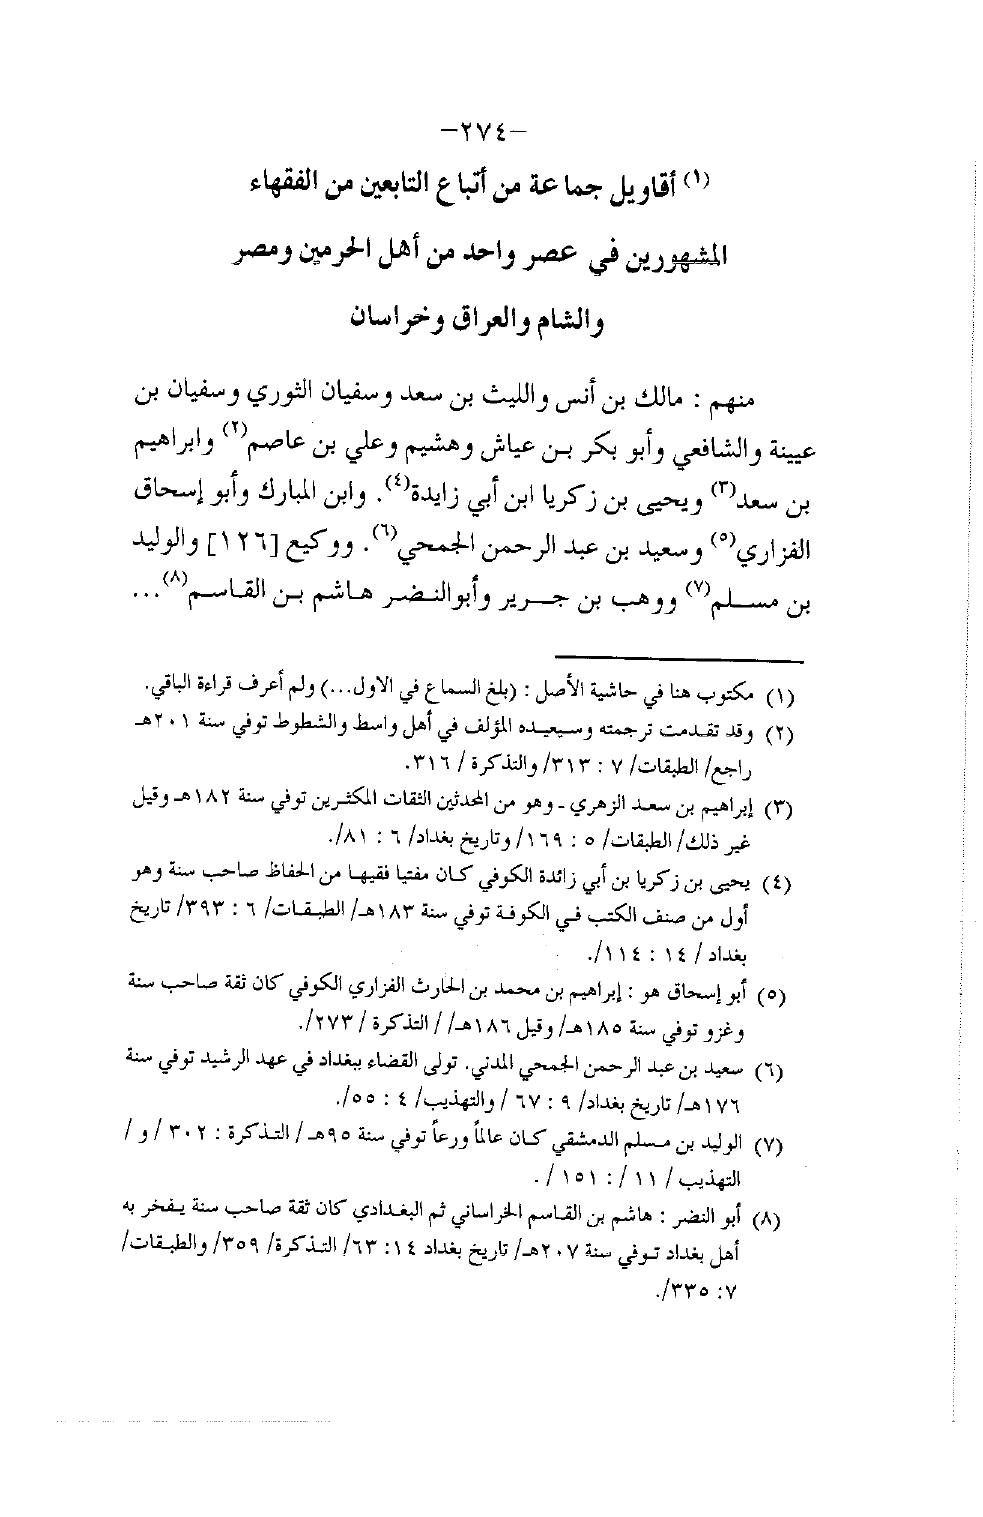 -٢٧٤-
(١) أقاويل جماعة من أتباع التابعين من الفقهاء
المشهورين في عصر واحد من أهل الحرمين ومصر
والشام والعراق وخراسان
منهم : مالك بن أنس والليث بن سعد وسفيان الثوري وسفيان بن
عيينة والشافعي وأبو بكر بن عياش وهشيم وعلي بن عاصم(٢) وابراهيم
بن سعد(٣) ويحيى بن زكريا ابن أبي زايدة(٤). وابن المبارك وأبو إسحاق
الفزاري(٥) وسعيد بن عبد الرحمن الجمحي(٦). ووكيع [١٢٦] والوليد
بن مسلم(٧) ووهب بن جرير وأبوالنضر هاشم بن القاسم(٨)...
(١) مكتوب هنا في حاشية الأصل : (بلغ السماع في الاول...) ولم أعرف قراءة الباقي.
(٢) وقد تقدمت ترجمته وسيعيده المؤلف في أهل واسط والشطوط توفي سنة ٢٠١هـ
راجع/ الطبقات/ ٧ : ٣١٣/ والتذكرة / ٣١٦.
(٣) إبراهيم بن سعد الزهري - وهو من المحدثين الثقات المكثرين توفي سنة ١٨٢هـ وقيل
غير ذلك/ الطبقات/ ٥ : ١٦٩/ وتاريخ بغداد/ ٦ : ٨١/.
(٤) يحيى بن زكريا بن أبي زائدة الكوفي كان مفتيا فقيها من الحفاظ صاحب سنة وهو
أول من صنف الكتب في الكوفة توفي سنة ١٨٣هـ/ الطبقات/ ٦ : ٣٩٣/ تاريخ
بغداد / ١٤ : ١١٤/.
(٥) أبو إسحاق هو : إبراهيم بن محمد بن الحارث الفزاري الكوفي كان ثقة صاحب سنة
وغزو توفي سنة ١٨٥هـ/ وقيل ١٨٦هـ/ / التذكرة / ٢٧٣/.
(٦) سعيد بن عبد الرحمن الجمحي المدني. تولى القضاء ببغداد في عهد الرشيد توفي سنة
١٧٦هـ/ تاريخ بغداد/ ٩ : ٦٧ / والتهذيب/ ٤ : ٥٥/.
(٧) الوليد بن مسلم الدمشقي كان عالماً ورعاً توفي سنة ٩٥هـ / التذكرة : ٣٠٢ / و /
التهذيب / ١١ /: ١٥١ /.
(٨) أبو النضر : هاشم بن القاسم الخراساني ثم البغدادي كان ثقة صاحب سنة يفخر به
أهل بغداد توفي سنة ٢٠٧هـ/ تاريخ بغداد ١٤: ٦٣/ التذكرة/ ٣٥٩/ والطبقات/
٧: ٣٣٥/.